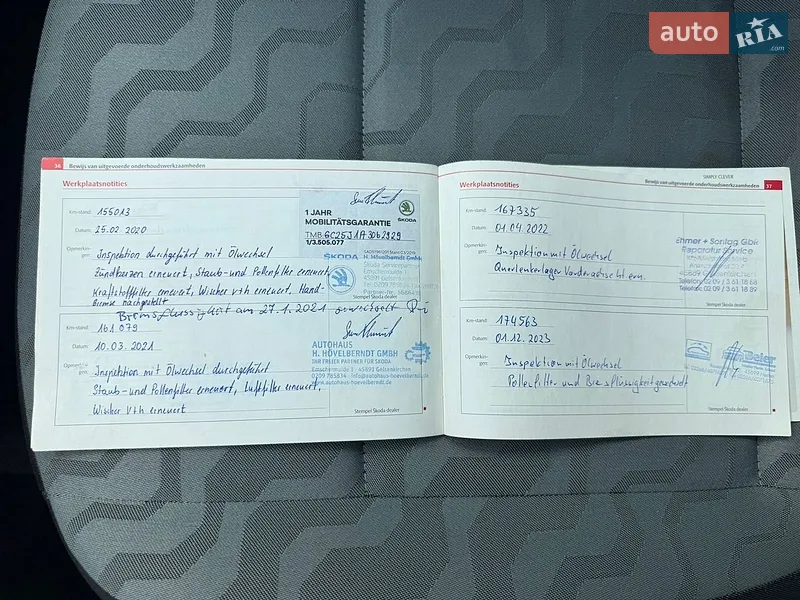 auto RIA.com
36 Bewijs van uitgevoerde onderhoudswerkzaamheden
Werkplaatsnotities
Km-stand: 155013
Datum: 25.02 2020
Opmerkin-
gen: Inspektion durchgeführt mit Ölwechsel
Zündkerzen erneuert, Staub-und Pollenfilter erneuert,
Kraftstofffilter erneuert, Wischer v+h erneuert. Hand-
Bremse nachgestellt
Bremsflüssigkeit am 27.1.2021
1 JAHR
MOBILITÄTSGARANTIE
SKODA
1/3.505.077
SKODA
H. Hövelberndt GmbH
Stempel Skoda dealer
Km-stand: 161 079
Datum: 10.03.2021
Opmerkin-
gen: Inspektion mit Ölwechsel durchgeführt
Staub-und Pollenfilter erneuert, Luftfilter erneuert,
Wischer v+h erneuert
AUTOHAUS
H. HÖVELBERNDT GMBH
IHR TREUER PARTNER FÜR SKODA
www.autohaus-hoevelberndt.de
Stempel Skoda dealer
SIMPLY CLEVER
Bewijs van uitgevoerde onderhoudswerkzaamheden 37
Werkplaatsnotities
Km-stand: 167335
Datum: 01.04.2022
Opmerkin-
gen: Inspektion mit Ölwechsel
Querlenkerlager Vorderachse
Sontag GbR
Reparatur Service
Telefon: 02 09 / 3 61 18 68
Telefax: 02 09 / 3 61 18 89
Stempel Skoda dealer
Km-stand: 174563
Datum: 01.12.2023
Opmerkin-
gen: Inspektion mit Ölwechsel
Pollenfilter und
Stempel Skoda dealer